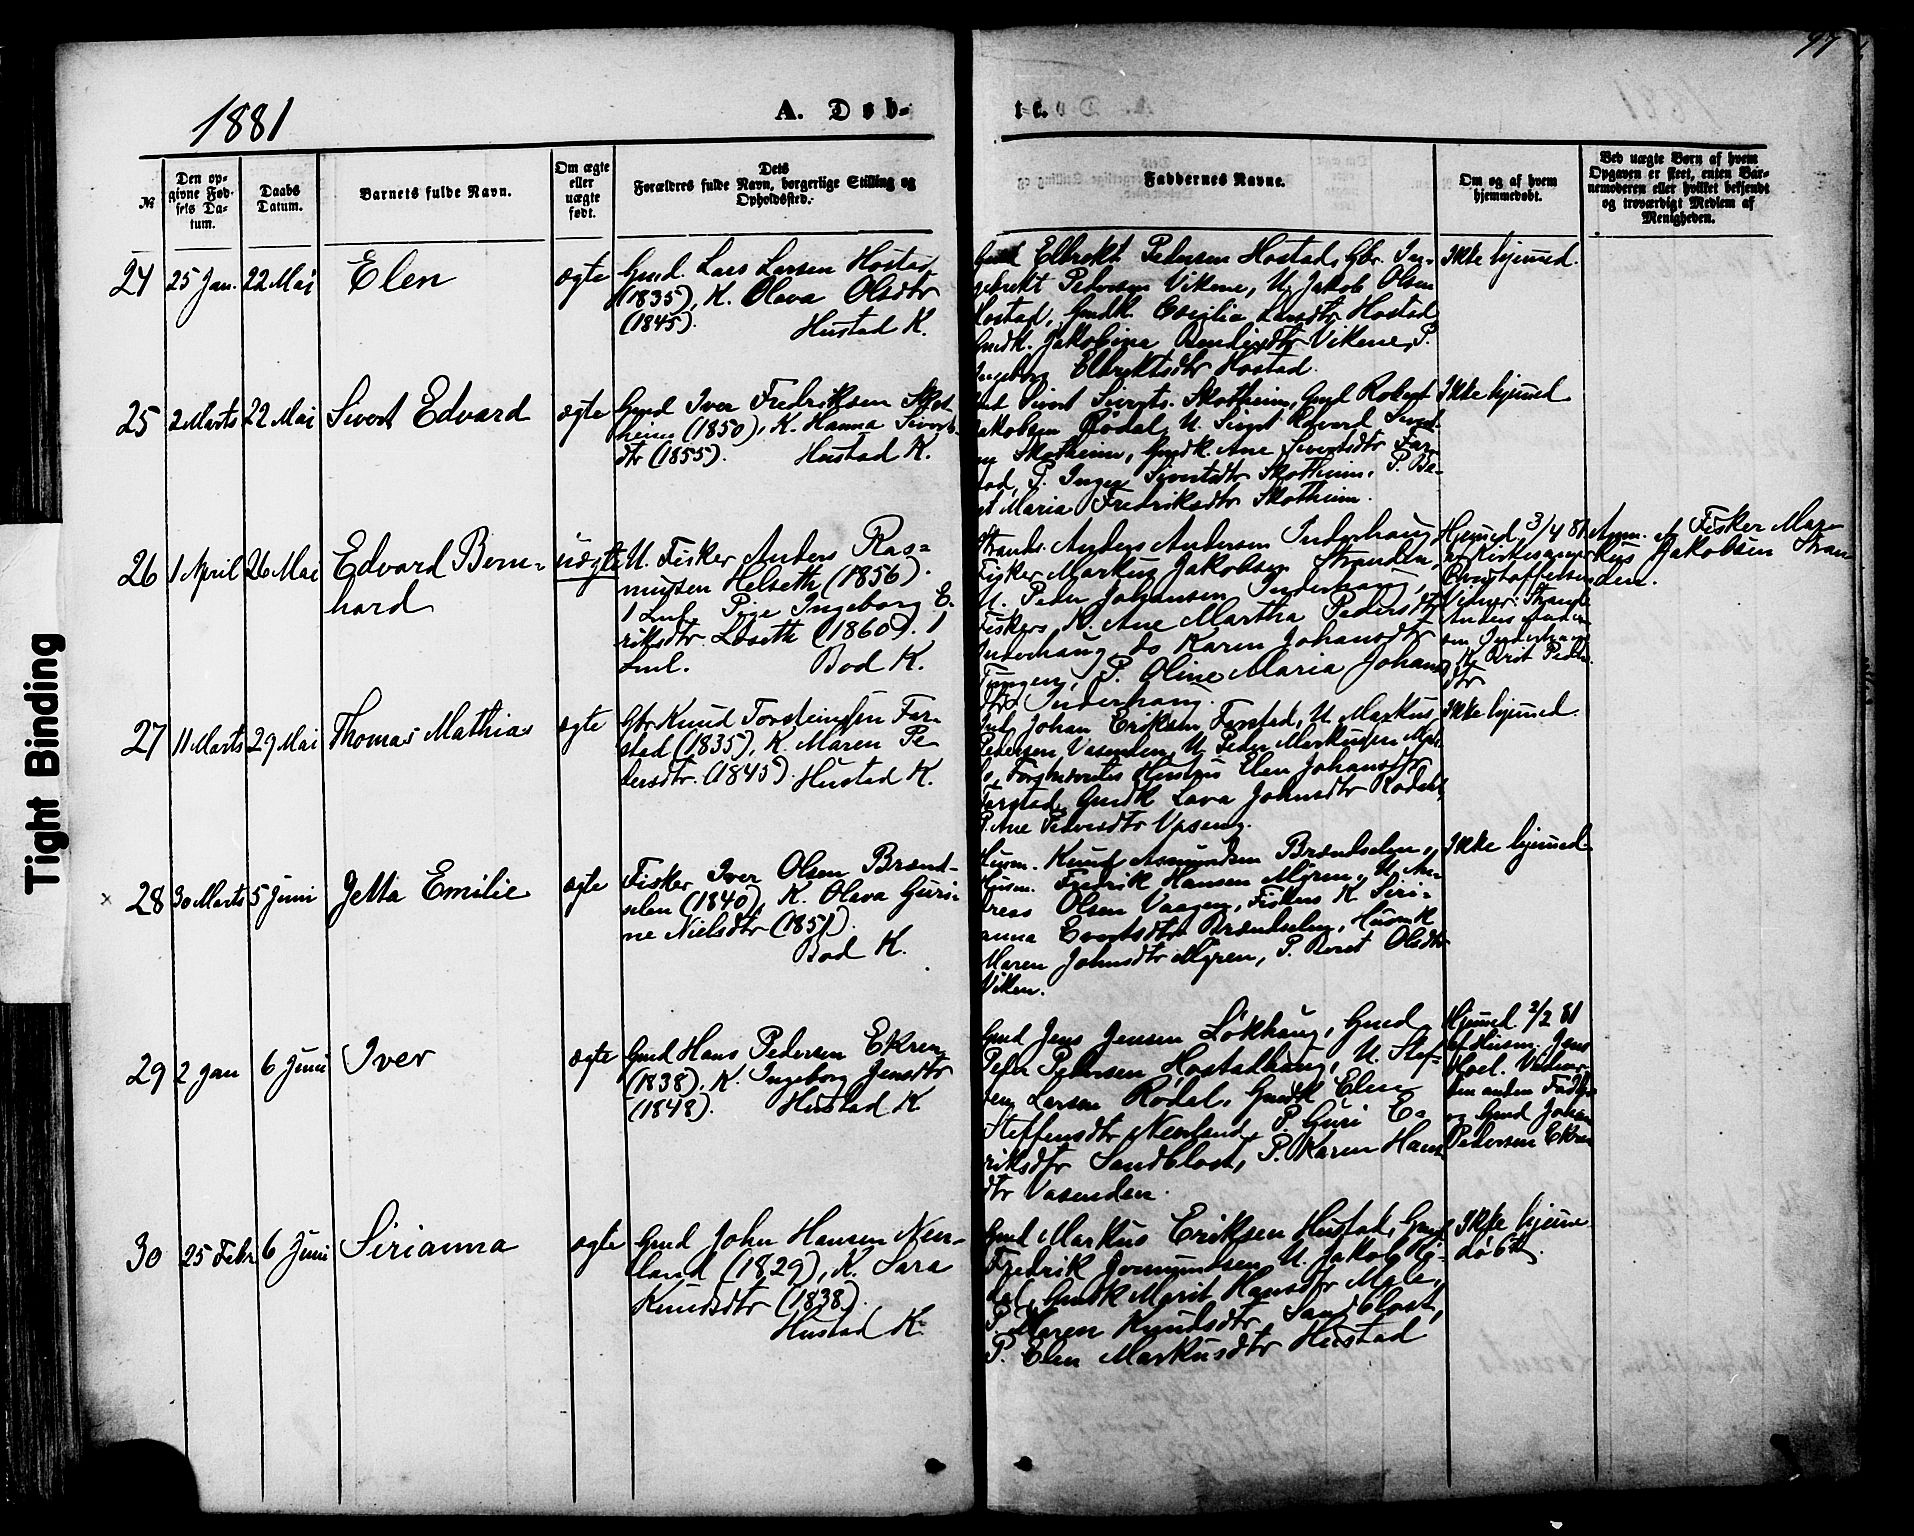 97
1881
A. Døb-
te.
№
Den op-
givne Fød-
sels Da-
tum.
Daabs
Datum.
Barnets fulde Navn.
Om ægte
eller
uægte
født.
Dets
Forældres fulde Navn, borgerlige Stilling og
Opholdssted.
Faddernes Navne.
Om og af hvem
hjemmedøbt.
Ved uægte Børn af hvem
Opgaven er skeet, enten Bar-
nemoderen eller hvilket bekjendt
og troværdigt Medlem af
Menigheden.
24
25 Jan.
22 Mai
Elen
ægte
Gmd. Lars Larsen Hostad
(1835), K. Olava Olsdtr
(1845).
Hustad K.
Elbrekt Pedersen Hostad, Gbr. In-
gebrekt Pedersen Vikene, U. Jakob Olsen
Hostad, Gmdk. Cecilia Larsdtr Hostad
Gmdk. Jakobina Vikene, P.
Ingeborg Elbrektsdtr Hostad.
Ikke hjemmed.
25
2 Marts
22 Mai
Sivert Edvard
ægte
Gmd Iver Fredriksen Skot-
heim (1850), K. Hanna Sivert-
dtr (1855).
Hustad K.
Sivert Siverts. Skotheim, Gmd Robert
Jakobsen Rødal, U. Sivert Edvard
Skotheim, Gmdk. Ane Sivertsdtr Far-
stad, P. Inger Sivertsdtr Skotheim, P. Be-
rit Maria Fredriksdtr Skotheim.
Ikke hjemmed
26
1 April
26 Mai
Edvard Bern-
hard
uægte
U. Fisker Anders Ras-
mussen Helseth (1856).
1 Leml. Pige Ingeborg E-
riksdtr Løseth (1860). 1
Leml.
Bod K.
Strands. Anders Andersen Inderhaug
Fisker Markus Jakobsen Stranden,
U. Peder Johansen Inderhaug,
Fiskers K. Ane Martha Pedersdtr
Inderhaug, do Karen Johansdtr
Tungen, P. Oline Maria Johans-
dtr Inderhaug.
Hjemmed. 3/4 81
av Kirkesanger
Christoffersen
Vidner: Strands.
Anders Ander-
sen Inderhaug
og K. Berit Peders-
dtr
Anm. af Fisker Mar-
kus Jakobsen Stran-
den.
27
11 Marts
29 Mai
Thomas Mathias
ægte
Gbr Knud Torsteinsen Far-
stad (1835), K. Maren Pe-
dersdtr. (1845).
Hustad K.
Johan Eriksen Farstad, U. Markus
Pedersen Vasenden, U. Peder Markussen
Hustrus Elen Johansdtr
Farstad, Gmdk Lava Johnsdtr Rødal,
P. Ane Pedersdtr Vaseng.
Ikke hjemmed.
28
30 Marts
5 Juni
Jetta Emilie
ægte
Fisker Iver Olsen Brænd-
selen (1840), K. Olava Guri-
ne Nielsdtr (1851).
Bod K.
Husm. Knud Asmundsen Brændselen,
Husm. Fredrik Hansen Myren, U. An-
dreas Olsen Vaagen, Fiskers K Siri-
anna Evertsdtr Brændselen, Husm K
Maren Johnsdtr Myren, P. Beret Olsdtr
Viken.
Ikke hjemmed
29
2 Jan
6 Juni
Iver
ægte
Gmd Hans Pedersen Ekren
(1838), K. Ingeborg Jensdtr
(1848).
Hustad K
Gmd Jens Jensen Løkhaug, Gmd
Peder Pedersen Hostadhaug, U. Stef-
fen Larsen Rødal, Gmdk Elen
Steffensdtr Nerland, P. Guri E-
riksdtr Sandblost, P. Karen Hans
dtr Vasenden.
Hjemmed 2/2 81
af Husm. Jens
Hoel. Vidner
den anden Fadder
og Gmd Johan
Pedersen Ekren
30
25 Febr
6 Juni
Sirianna
ægte
Gmd John Hansen Ner-
land (1829), K. Sara
Knudsdtr (1838).
Hustad K.
Gmd Markus Eriksen Hustad, Gmd
Fredrik Jomundsen, U. Jakob Rø-
dal, Gmdk Marit Hansdtr Male,
P. Maren Knudsdtr Sandblost,
P. Elen Markusdtr Hustad
Ikke hjemme
døbt.
Tight Binding